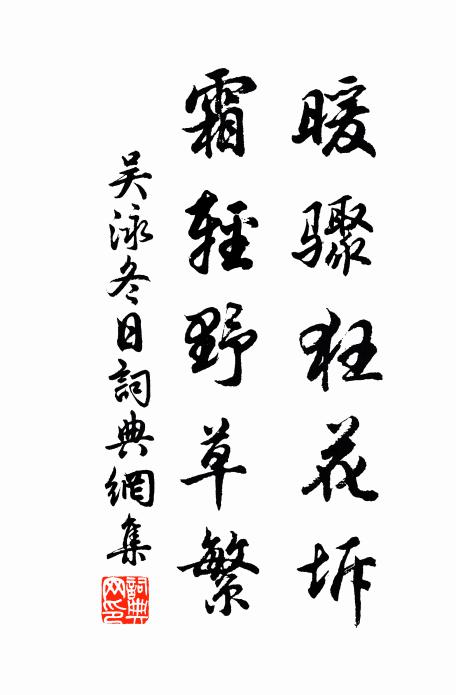 暖驟狂花坼
霜輕野草繁
吴泳冬日詞典網集
詞典
网印